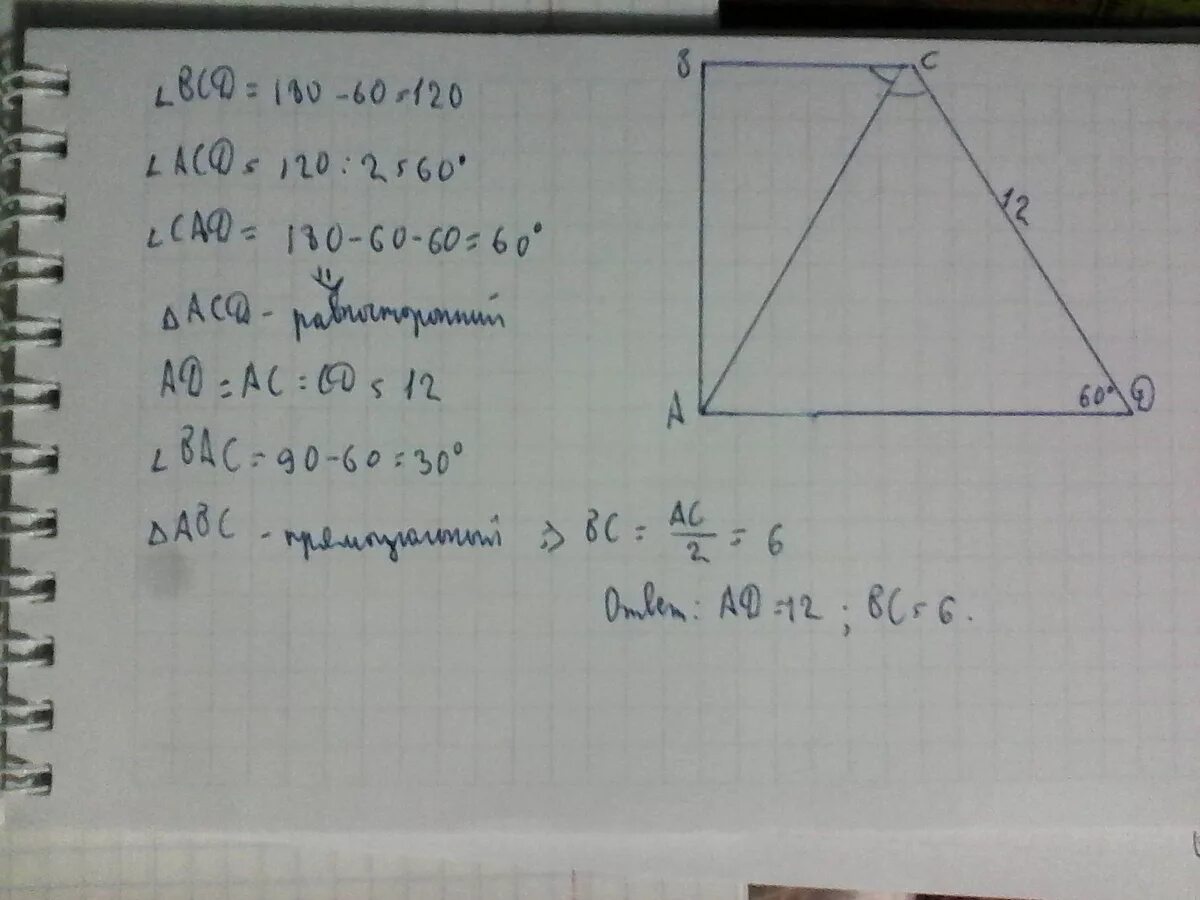 ∠BCD = 180 - 60 = 120
∠ACD = 120 : 2 = 60°
∠CAD = 180 - 60 - 60 = 60°
⇓
△ACD - равносторонний
AD = AC = CD = 12
∠BAC = 90 - 60 = 30°
△ABC - прямоугольный ⇒ BC = AC/2 = 6
Ответ: AD = 12 ; BC = 6.
B
C
12
A
60°
D